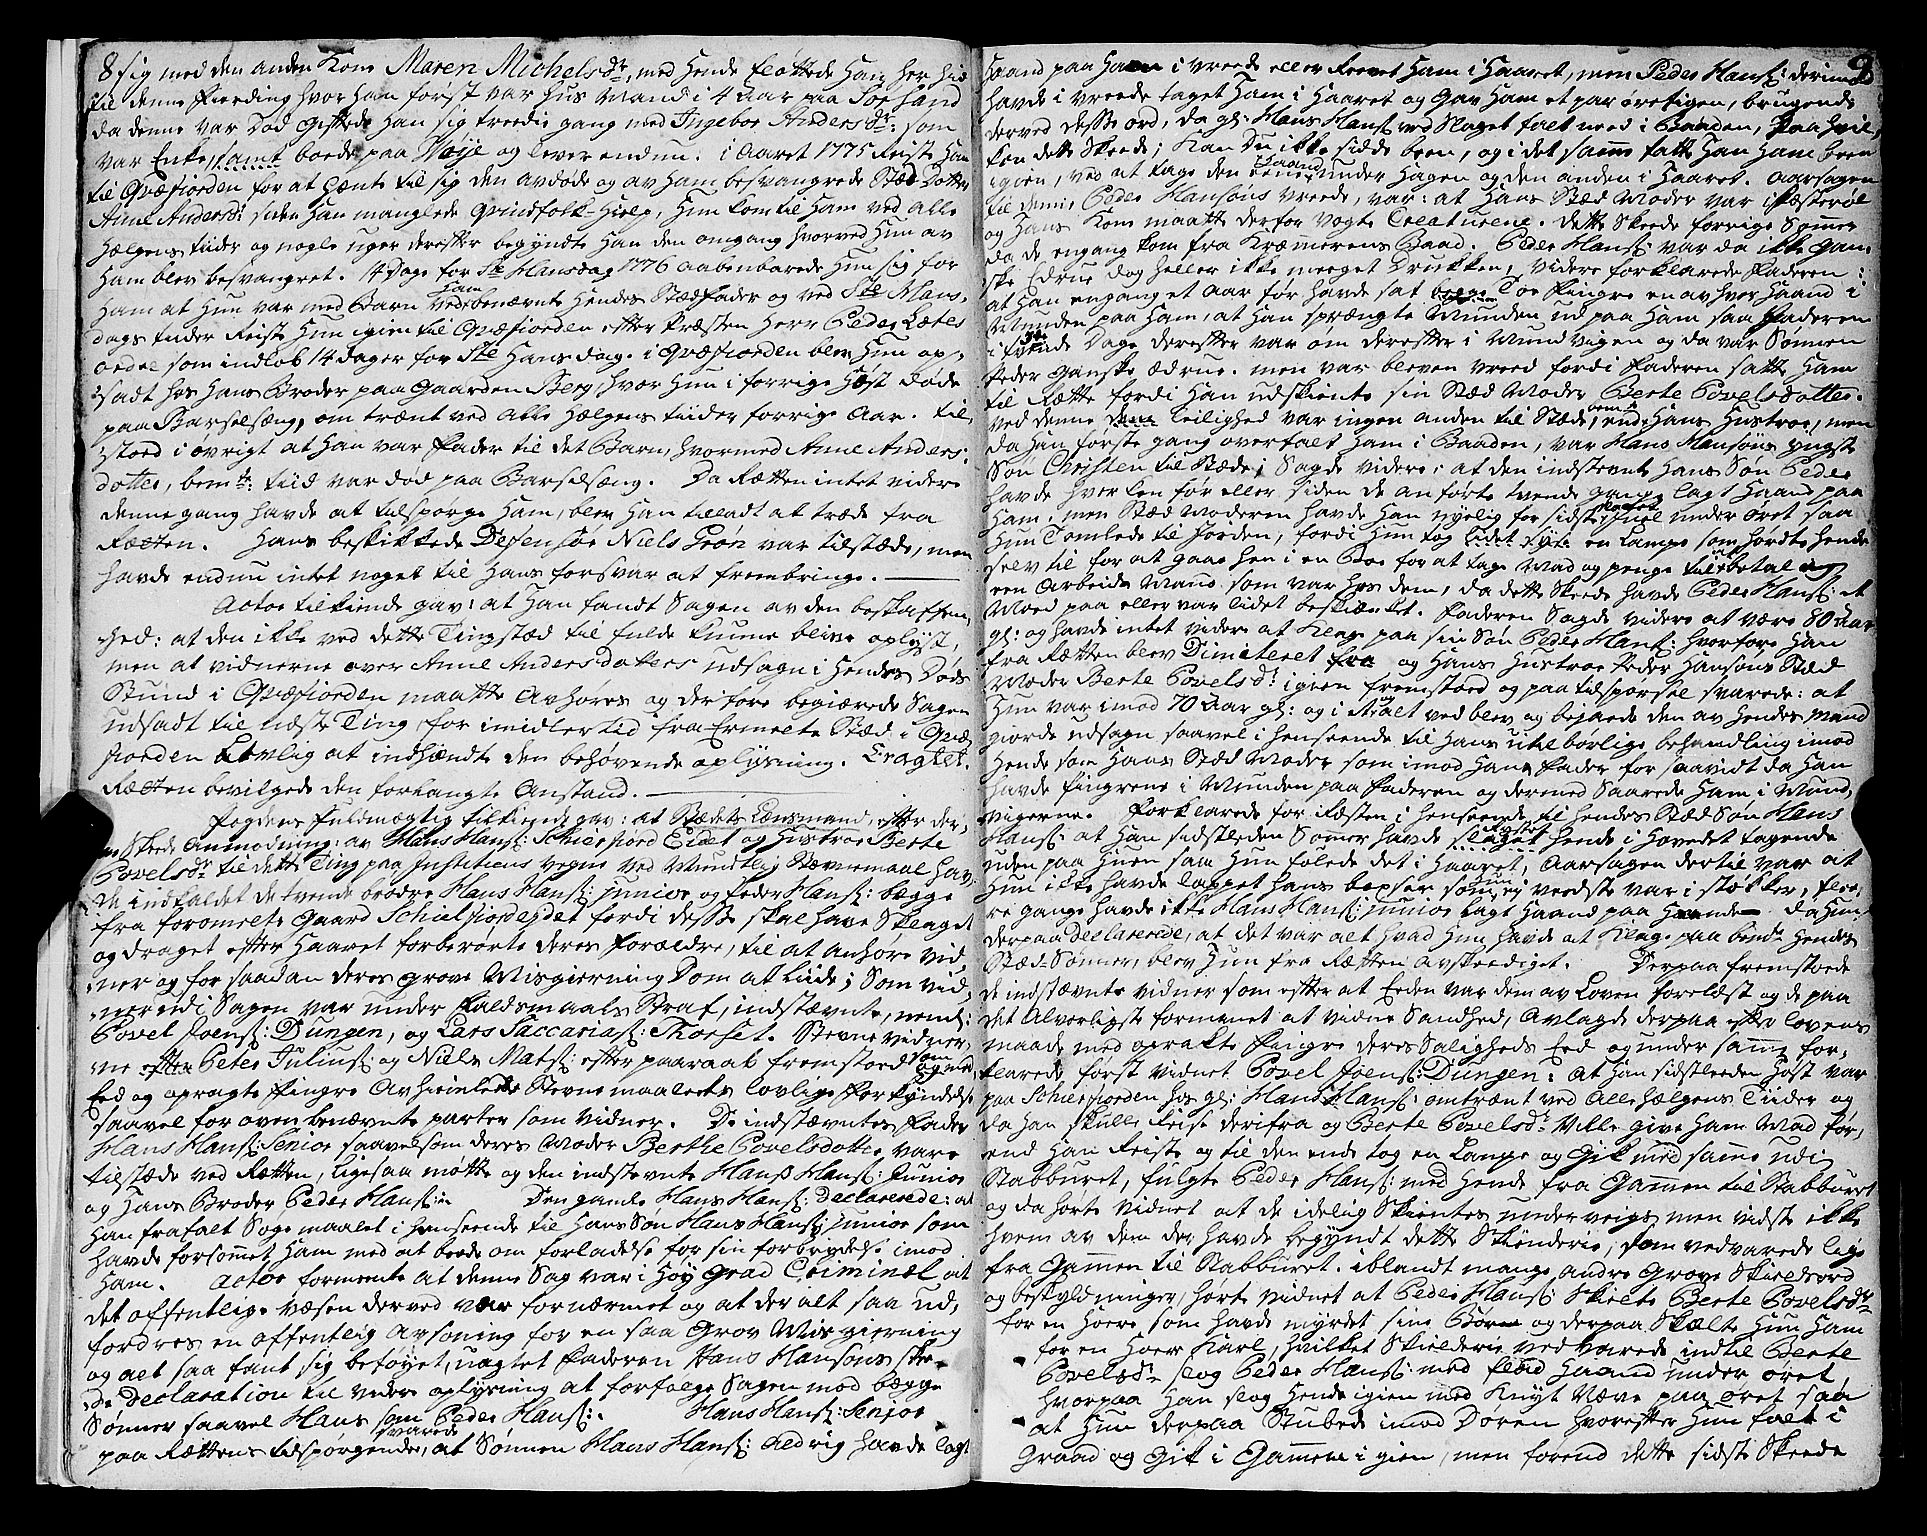 8 sig med den anden Kone Maren Michelsdr, med Hende fløttede Han her hid
til denne fierding hvor Han først var Hus Mand i 4 Aar paa Sørsand
da denne var Død Giftede Han sig treedie gang med Ingebor Andersdr: som
var Enke, samt boede paa Nøije og lever endnu. i Aaret 1775 Reiste Han
til Qvæfiorden for at hente til sig den avdøde og av Ham besvangrede Stæd Dotter
Anne Andersdr siden Han manglede qvindfolk-Hielp, Hun kom til Ham ved alle
Hælgens tiider og nogle uger derefter begyndte Han den omgang hvorved Hun av
Ham blev besvangret. 14 Dage for Ste Hansdag 1776 aabenbarede Hun sig for
Ham at Hun var med Barn ved benævnte Hendes Stædfader og ved Ste Hans,
Ham
dags tider Reiste Hun igien til Qvæfiorden efter Præsten Herr Peder Lætes
ordre som indløb 14 dager for Ste Hans dag. i Qvæfiorden blev Hun op-
sadt hos Hans Broder paa Gaarden Berg, hvor Hun i forrige Høst døde
paa Barselsæng, om trænt ved alle Hælgens tiider forrige Aar. til
stoed i øvrigt at Han var Fader til det Barn, hvormed Anne Anders-
dotter, bemte tiid var død paa Barselsæng. Da Rætten intet videre
denne gang havde at tilspørge Ham, blev Han tilladt at træde fra
Rætten. Hans beskikkede Defensor Niels Grøn var tilstæde, men
havde endnu intet noget til Hans forsvar at frembringe.
Actor tilkiende gav: at Han fandt Sagen av den beskaffen,
hed: at den ikke ved dette Tingstæd til fulde kunne blive oplyst,
men at vidnerne over Anne Andersdatters udsagn i Hendes Døds
Stund i Qvæfiorden maatte avhøres og derfore begiærede Sagen
udsadt til næste Ting, for imidlertid fra Ermelte Stæd i Qvæ
fiorden Lovlig at indhændte den behøvende oplysning. Eragtet.
Rætten bevilgede den forlangte Anstand.
Fogdens Fuldmægtig tilkiende gav: at Stædets Lænsmand, efter der,
om Skede Anmodning av Hans Hans: Schierfiord Eidet og Hustroe Berte
Povelsdr til dette Ting paa Justitiens vegne ved Mundtlig Stævnemaal hav,
de indkaldet de tvende brødre Hans Hans: junior og Peder Hans: begge
fra formelte gaard Schielfiordeidet fordi desse skal have Slaaget
og draget efter Haaret forberørte deres Forældre, til at anhøre vid,
ner og for saadan deres grove Misgierning Dom at liide; Som vid,
ner udi Sagen var under Faldsmaals Straf, indstævnte, neml:
Povel Joens: Dungen, og Lars Saccarias: Thorset. Stevnevidner,
ne efter Peter Julius: og Niels Mats: efter paaraab fremstoed som og med
Eed og opragte Fingre avhiemlede Stevnemaalets lovlige Forkyndelse
saavel for oven benævnte parter som vidner. De indstævntes Fader
Hans Hans: Senior saavelsom deres Moder Berthe Povelsdotter, vare
tilstæde ved Rætten, ligesaa mødte og den indstevnte Hans Hans: Junior
og Hans Broder Peder Hans: Den gamle Hans Hans: Declarerede: at
Han frafalt Søgemaalet i henseende til Hans Søn Hans Hans: junior som
havde forsonnet Ham med at beede om forladelse for sin forbrydelse imod
Ham. Actor formente at denne Sag var i Høy Grad Criminel at
det offentlige væsen derved var fornærmet og at der alt saa ud,
fordres en offentlig avsoning for en saa Grov Misgierning
og alt saa fant sig beføyet, uagtet Faderen Hans Hansøns skee,
de Declaration til videre oplysning at forfølge Sagen mod begge
Sønner saavel Hans som Peder Hans: Hans Hans: Senior
paa Rættens tilspørgende svarede, at Sønnen Hans Hans: aldrig havde lagt
9
Haand paa Ham i vreede eller Revet Ham i Haaret, men Peder Hans: derimod
havde i vreede taget Ham i Haaret og Gav Ham et par ørefigen, brugende
derved desse ord, da gl: Hans Hans: ved Slaget falt need i Baaden, paa hvil,
ken dette Skeede; Kan Du ikke sidde been, og i det samme satte Han Ham been
igien, ved at tage den eene Haand under Hagen og den anden i Haaret. Aarsagen
til denne Peder Hansøns vreede, var: at Hans Stæd Moder var i fæsterøl
og Hans Kone maatte derfor vogte Creaturene. dette Skeede forrige Sommer
da de engang kom fra Kræmmerens Baad. Peder Hans: var da ikke gan-
ske Edrue dog heller ikke meeget Drukken, videre forklarede Faderen:
at Han engang et Aar før havde sat begge Toe Fingre en av hver Haand i
Munden paa Ham, at Han sprængte Munden ud paa Ham saa Faderen
i fiorten Dage derefter var øm derefter i Mundvigen og da var Sønnen
Peder ganske ædrue. men var bleven vreed fordi Faderen satte Ham
til Rætte fordi Han udskiente sin Stæd Moder Berte Povelsdotter.
ved denne Leilighed var ingen anden til Stæde, end Hans Hustroe, men
da Han første gang overfalt Ham i Baaden, var Hans Hansøns yngste
Søn Christen til Stæde, Sagde videre: at den indstevnte Hans Søn Peder
havde hverken før eller siden de anførte tvende gange lagt Haand paa
Ham. men Stæd Moderen havde Han nyelig for sidste Juul slaaet under øret saa
Hun Tomlede til Jorden, fordi Hun tog en Lampe som hørdte Hende
selv til for at gaae hen i en Boe for at tage Mad og penge til at betale og
een Arbeids Mand som var hos dem, da dette Skeede havde Peder Hans: et
Moed paa eller var lidet beskiænket. Faderen Sagde videre at være 80 Aar
gl: og havde intet videre at klage paa sin Søn Peder Hans: hvorfore Han
fra Rætten blev Dimiteret og Hans Hustroe Peder Hansøns Stæd
Moder Berte Povelsdr igien fremstoed og paa tilspørsel svarede: at
Hun var imod 70 Aar gl: og i Alt ved blev og bejaede den av Hendes Mand
giorde udsagn saavel i henseende til Hans utilbørlige behandling imod
Hende som Hans Stæd Moder som imod Hans Fader for saavidt da Han
havde Fingrene i Munden paa Faderen og dermed Saarede Ham i Mund,
vigerne. Forklarede for Resten i henseende til Hendes Stæd Søn Hans
Hans: at Han sidstleeden Sommer havde Hende i Hovedet tagende
uden paa Huen saa Hun følede det i Haaret, Aarsagen dertil var at
Hun ikke havde lappet Hans bepser som Hun ey veedste var i støkker, flee-
re gange havde ikke Hans Hans: junior lagt Haand paa Hende. da Hun
derpaa Declarerede, at det var alt hvad Hun havde at Klage paa bemte Hendes
Stæd-Sønner, blev Hun fra Rætten avskeediget. Derpaa fremstoede
de indstævnte vidner som efter at Eeden var dem av Loven forelæst og de paa
det Alvorligste formanet at vidne Sandhed, avlagde derpaa efter lovens
maade med oprakte Fingre deres Saligheds Eed og under samme for,
klarede først vidnet Povel Joens: Dungen: at Han sidstleeden Høst var
paa Schierfiorden hos gl: Hans Hans: omtrænt ved Alle Hælgens Tiider og
da Han skulle Reise derifra og Berte Povelsdr ville give Ham Mad for,
end Han Reiste og til den ende tog en Lampe og gik med samme udi
Stabburet, fulgte Peder Hans: med Hende fra Gammen til Stabburet
og da hørte vidnet at de idelig Skientes underveigs men vidste ikke
hvem av dem der havde begyndt dette Skienderie, som vedvarede lige
fra Gammen til Stabburet. iblandt mange andre Grove Skieldsord
og beskyldninger, hørte vidnet at Peder Hans: Skielte Berte Povelsdr
for en Hoere som havde myrdet sine Børn og derpaa Skielte Hun Ham
for en Hoer Karl, hvilket Skielderie vedvarede indtil Berte
Povelsdr slog Peder Hans: med flad Haand under øret
hvorpaa Han slog Hende igien med Knyt Næve paa øret saa
at Hun derpaa Stubede imod Døren hvorefter Hun falt i
Graad og gik i Gammen igien, men forend dette sidste Skeede